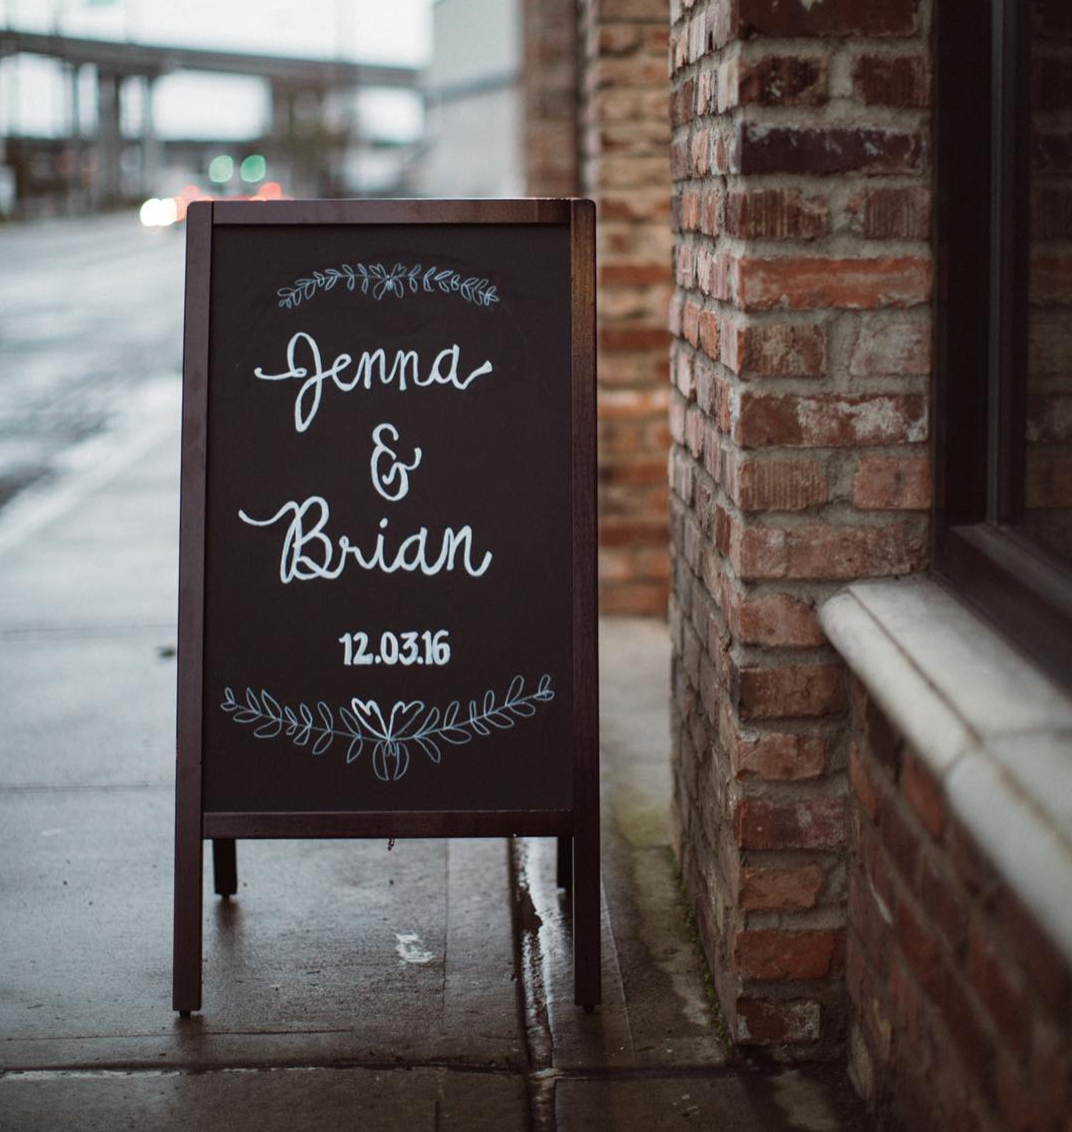 Jenna
&
Brian
12.03.16